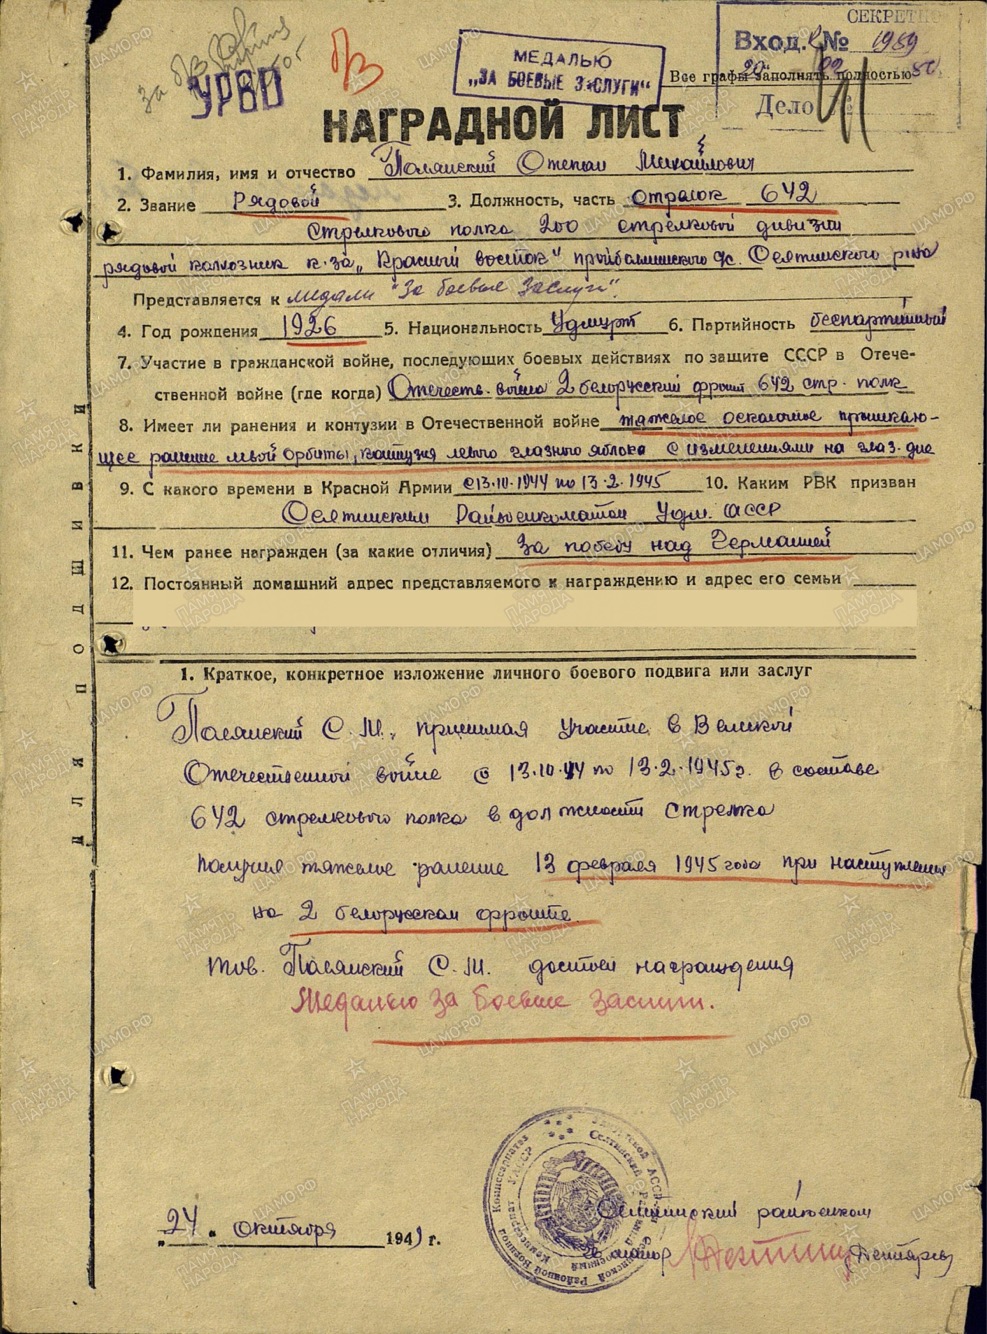 СЕКРЕТНО
Вход. № 1959
УРВО
МЕДАЛЬЮ
„ЗА БОЕВЫЕ ЗАСЛУГИ“
Все графы заполнять полностью
Дело
НАГРАДНОЙ ЛИСТ
1. Фамилия, имя и отчество Полянский Степан Михайлович
2. Звание Рядовой 3. Должность, часть стрелок 642
стрелкового полка 200 стрелковой дивизии
рядовой колхозник к-за „Красный восток" с. Селтинского р-на
Представляется к медали "За боевые заслуги".
4. Год рождения 1926 5. Национальность Удмурт 6. Партийность беспартийный
7. Участие в гражданской войне, последующих боевых действиях по защите СССР в Отече-
ственной войне (где когда) Отечеств. война 2 белорусский фронт 642 стр. полк
8. Имеет ли ранения и контузии в Отечественной войне тяжелое осколочное проникаю-
щее ранение левой орбиты, контузия левого глазного яблока с изменениями на глаз. дне
9. С какого времени в Красной Армии с 13.10.1944 по 13.2.1945 10. Каким РВК призван
Селтинским Райвоенкоматом Удм. АССР
11. Чем ранее награжден (за какие отличия) За победу над Германией
12. Постоянный домашний адрес представляемого к награждению и адрес его семьи
ДЛЯ ПОДШИВКИ
1. Краткое, конкретное изложение личного боевого подвига или заслуг
Полянский С.М., принимая участие в Великой
Отечественной войне с 13.10.44 по 13.2.1945г. в составе
642 стрелкового полка в должности стрелка
получил тяжелое ранение 13 февраля 1945 года при наступлении
на 2 белорусском фронте.
тов. Полянский С.М. достоин награждения
Медалью За боевые заслуги.
„24" октября 1949 г.
Селтинский райвоенком
майор
ЦАМО.РФ
ПАМЯТЬ НАРОДА